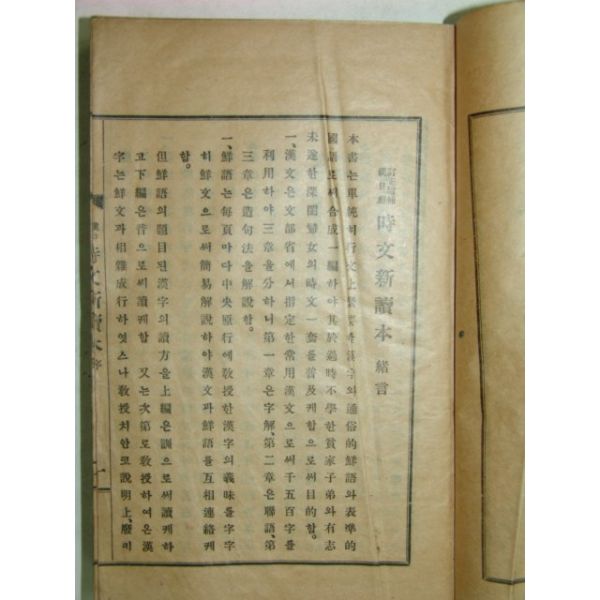 時文新讀本 緖言
本書는 單純히 行文上 緊要한 漢字의 通俗的 鮮語와 表準的
國語로써 合成一編하야 其於過時不學한 貧家子弟와 有志
未遂한 深閨婦女의 時文一套를 普及케함으로써 目的함。
一、漢文은 文部省에서 指定한 常用漢文으로써 千五百字를
利用하야 三章을 分하니 第一章은 字解、第二章은 聯語、第
三章은 造句法을 解說함。
一、鮮語는 每頁마다 中央原行에 敎授한 漢字의 義味를 字字
히 鮮文으로써 簡易解說하야 漢文과 鮮語를 互相連絡케
함。
但鮮語의 題目된 漢字의 讀方을 上編은 訓으로써 讀케하
고 下編은 音으로써 讀케함 又는 次第로 敎授하여온 漢
字는 鮮文과 相雜成行하엿스나 敎授치안코 說明上、
時文新讀本